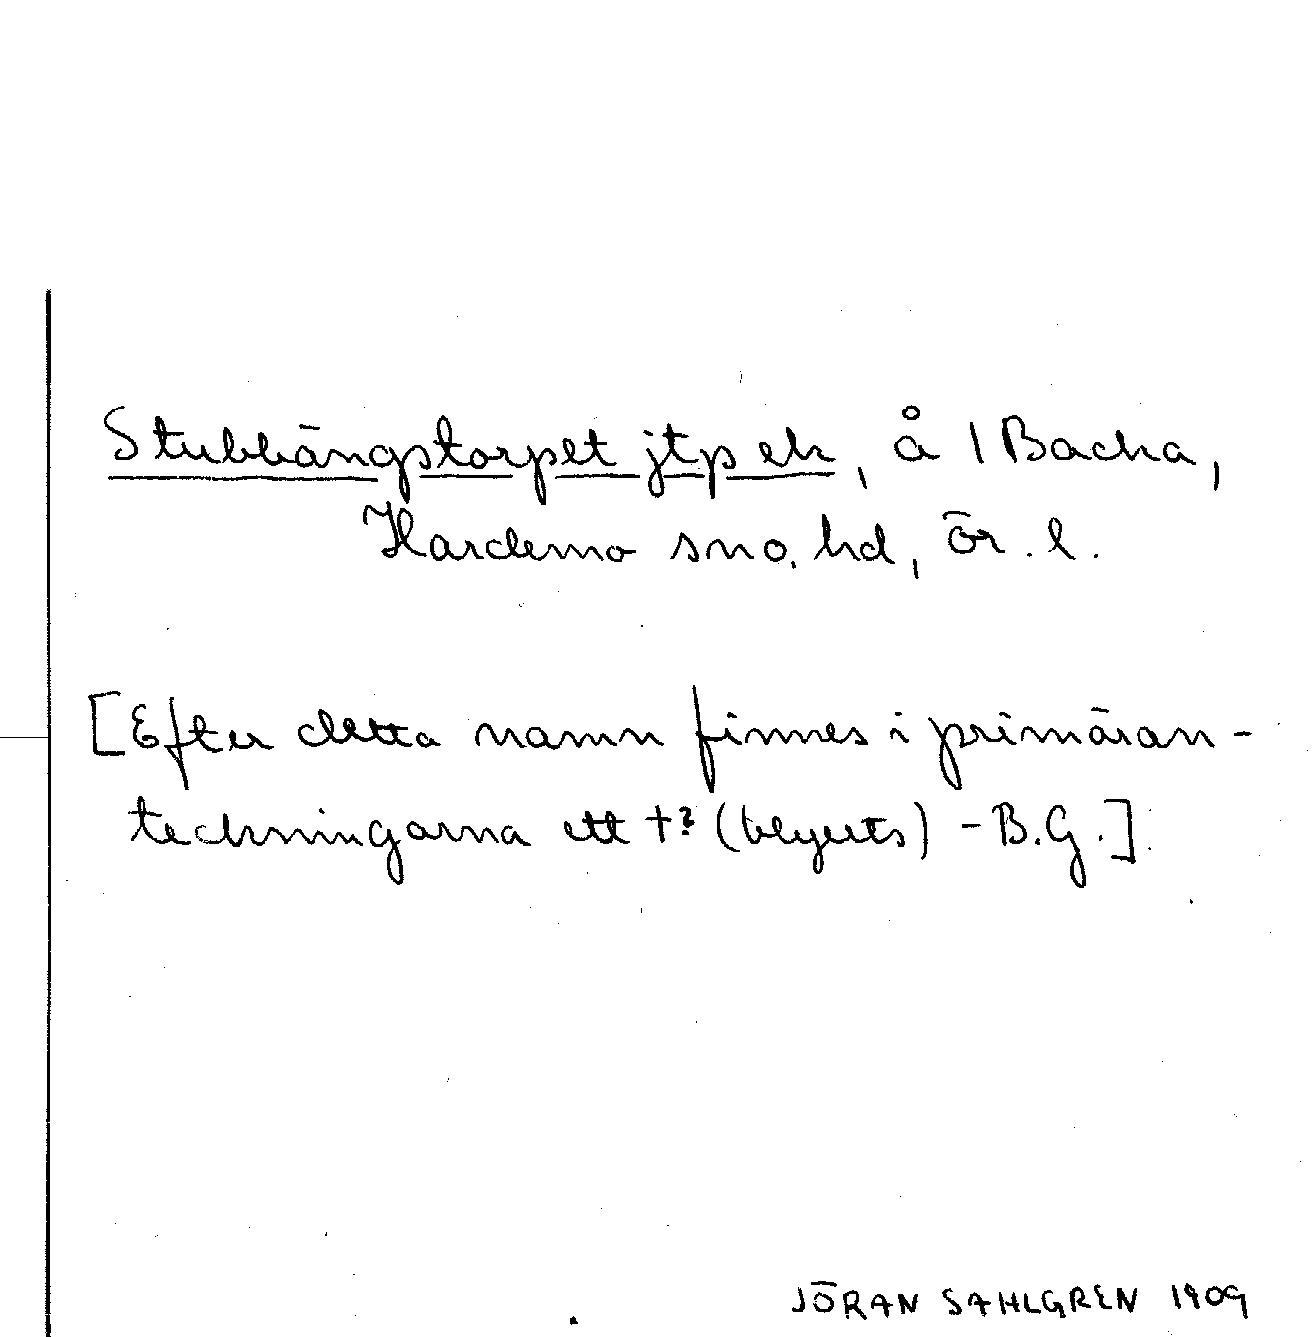 Stubbängstorpet jtp eh, å 1 Backa,
Hardemo sn o. hd, Ör. l.
[Efter detta namn finnes i primäran-
teckningarna ett †? (blyerts) - B.G.]
JÖRAN SAHLGREN 1909